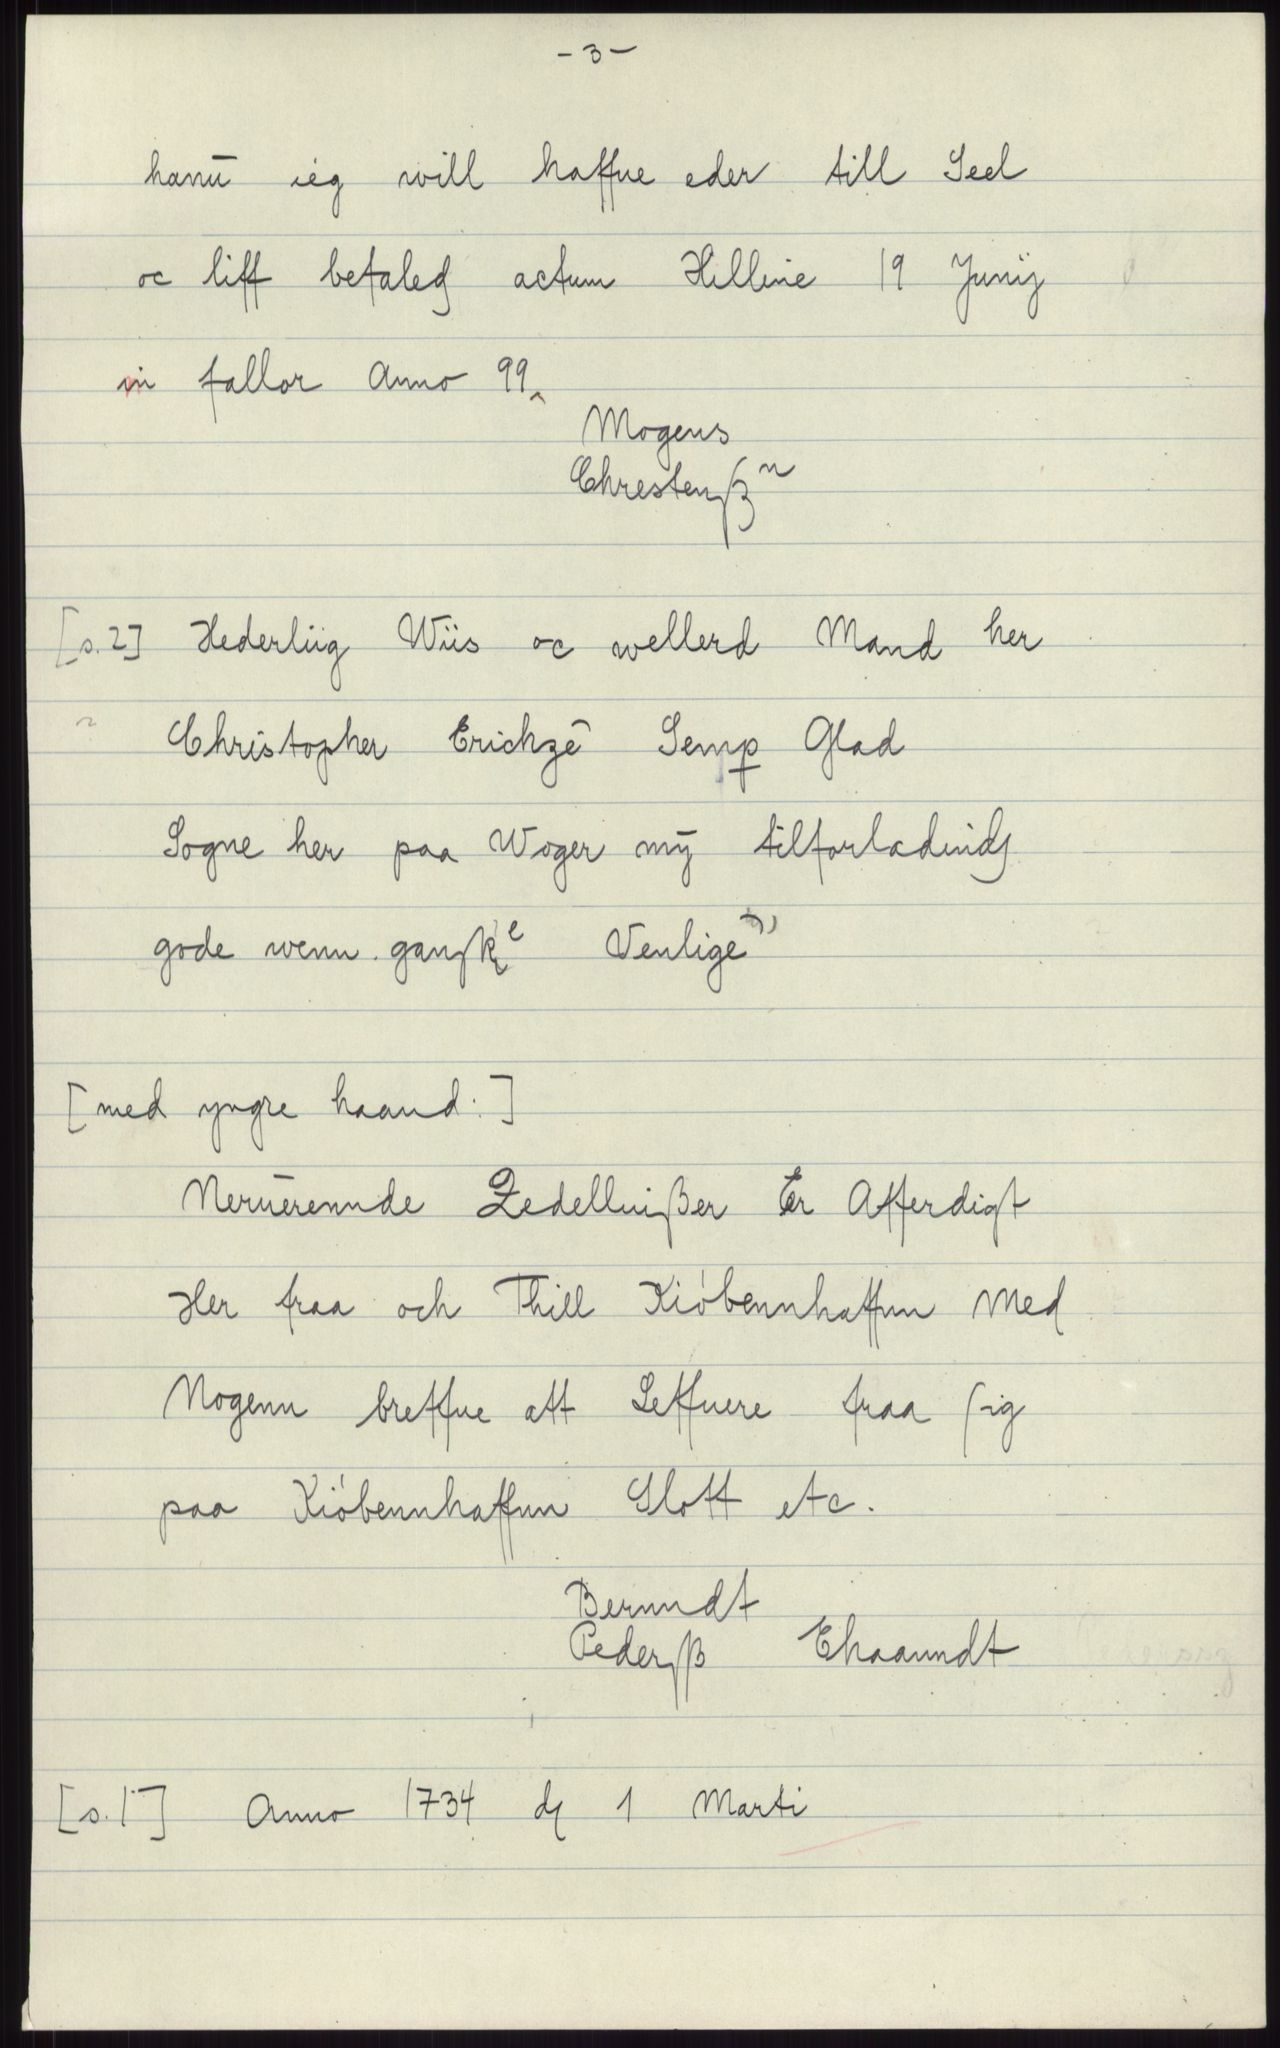 - 3 -
hanū ieg will haffue eder till Seel
oc liff befaled actum Hilline 19 Junij
ni fallor Anno 99
Mogens
Chrestenßn
[s.2] Hederliig Wiis oc wellerd Mand her
Christopher Erichzē Semp Glad
Sogne her paa Woger mÿ tilforladinds
gode wenn ganske Venlige
[med yngre haand:]
Neruerennde Zedelluißer Er Afferdigt
Her fraa och Thill Kióbennhaffnn Med
Nogenn breffue att Leffuere fraa sig
paa Kióbennhaffnn Slott etc.
Bernndt
Pederß Ehaanndt
[s.1] Anno 1734 d 1 Marti